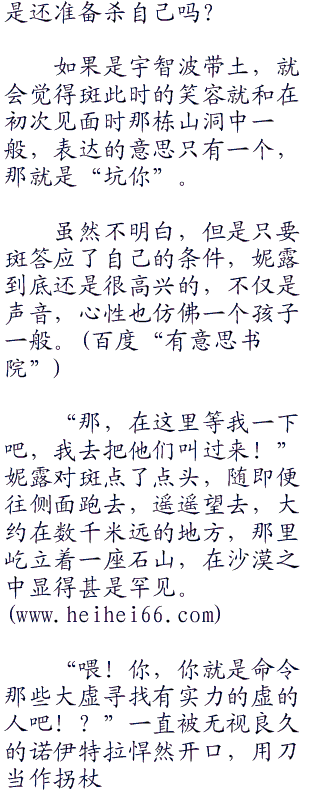 是还准备杀自己吗？
如果是宇智波带土，就
会觉得斑此时的笑容就和在
初次见面时那栋山洞中一
般，表达的意思只有一个，
那就是“坑你”。
虽然不明白，但是只要
斑答应了自己的条件，妮露
到底还是很高兴的，不仅是
声音，心性也仿佛一个孩子
一般。(百度“有意思书
院”)
“那，在这里等我一下
吧，我去把他们叫过来！”
妮露对斑点了点头，随即便
往侧面跑去，遥遥望去，大
约在数千米远的地方，那里
屹立着一座石山，在沙漠之
中显得甚是罕见。
(www.heihei66.com)
“喂！你，你就是命令
那些大虚寻找有实力的虚的
人吧！？”一直被无视良久
的诺伊特拉悍然开口，用刀
当作拐杖